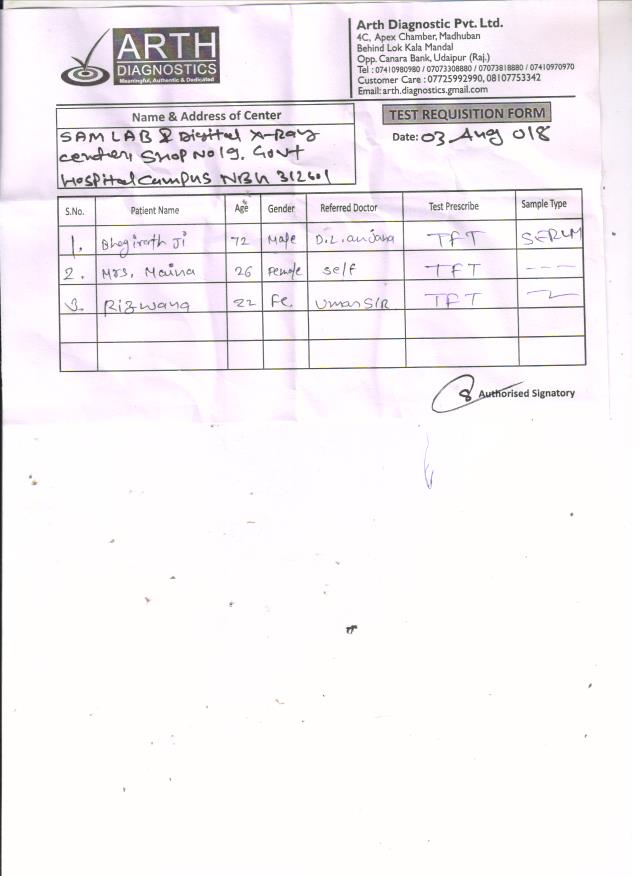 ARTH
DIAGNOSTICS
Meaningful, Authentic & Dedicated
Arth Diagnostic Pvt. Ltd.
4C, Apex Chamber, Madhuban
Behind Lok Kala Mandal
Opp. Canara Bank, Udaipur (Raj.)
Tel : 07410980980 / 07073308880 / 07073818880 / 07410970970
Customer Care : 07725992990, 08107753342
Email: arth.diagnostics.gmail.com
Name & Address of Center
SAM LAB & Digital X-Ray
center, Shop No 19. Govt
Hospital Campus NBH 312601
TEST REQUISITION FORM
Date: 03 Aug 018
S.No. Patient Name Age Gender Referred Doctor Test Prescribe Sample Type
1. Bhagirath Ji 72 Male D.L. anjana TFT SERUM
2. Mrs. Maina 26 Female self TFT ---
3. Rizwana 22 Fe Umar S/R TFT
Authorised Signatory